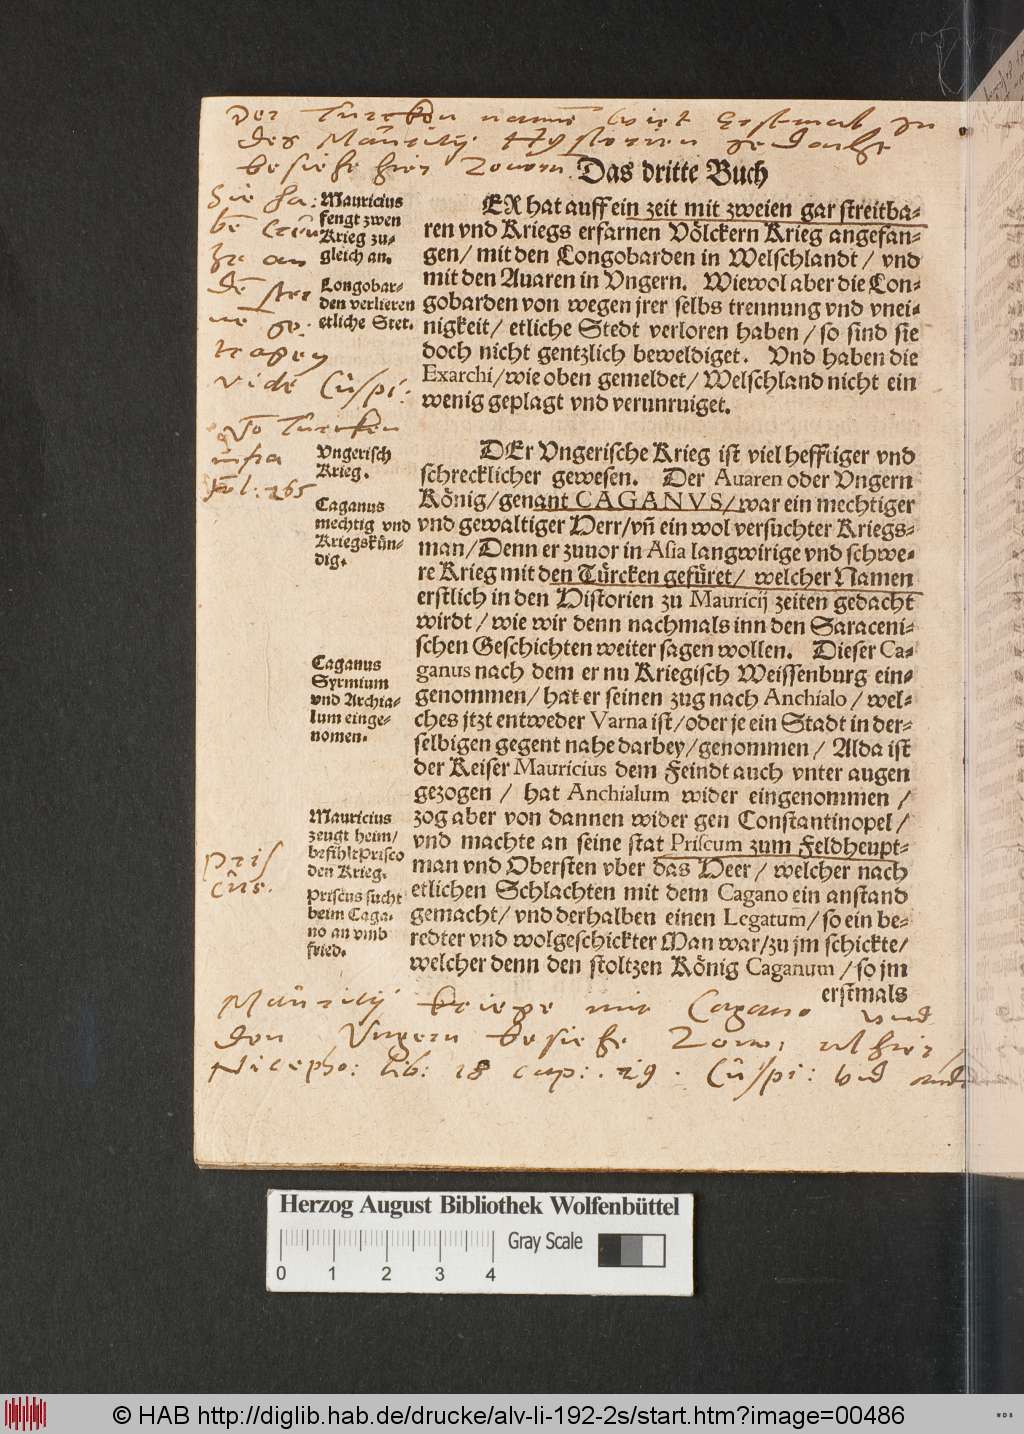 Der Turcken namē wirt Erstmal In
des Mauritij Hystorien gedacht
besiehe hier Zonorn.
Das dritte Buch
Sie ha:
bē Creu
tze an
dē stir
ne ge:
tragen
vide Cuspi:
Vō Turcken
infra
fol: 265
Mauricius
fengt zwen
Krieg zu-
gleich an.
Longobar-
den verlieren
etliche Stet.
ER hat auff ein zeit mit zweien gar streitba-
ren vnd Kriegs erfarnen Völckern Krieg angefan-
gen/ mit den Longobarden in Welschlandt/ vnd
mit den Auaren in Vngern. Wiewol aber die Lon-
gobarden von wegen jrer selbs trennung vnd vnei-
nigkeit/ etliche Stedt verloren haben/ so sind sie
doch nicht gentzlich beweldiget. Vnd haben die
Exarchi/ wie oben gemeldet/ Welschland nicht ein
wenig geplagt vnd verunruiget.
Vngerisch
Krieg.
Caganus
mechtig vnd
Kriegskün-
dig.
DEr Vngerische Krieg ist viel hefftiger vnd
schrecklicher gewesen. Der Auaren oder Vngern
König/ genant CAGANVS/ war ein mechtiger
vnd gewaltiger Herr/ vñ ein wol versuchter Kriegs-
man/ Denn er zuuor in Asia langwirige vnd schwe-
re Krieg mit den Türcken gefüret/ welcher Namen
erstlich in den Historien zu Mauricij zeiten gedacht
wirdt/ wie wir denn nachmals inn den Saraceni-
schen Geschichten weiter sagen wollen. Dieser Ca-
ganus nach dem er nu Kriegisch Weissenburg ein-
genommen/ hat er seinen zug nach Anchialo/ wel-
ches jtzt entweder Varna ist/ oder je ein Stadt in der-
selbigen gegent nahe darbey/ genommen/ Alda ist
der Keiser Mauricius dem Feindt auch vnter augen
gezogen/ hat Anchialum wider eingenommen/
zog aber von dannen wider gen Constantinopel/
vnd machte an seine stat Priscum zum Feldheupt-
man vnd Obersten vber das Heer/ welcher nach
etlichen Schlachten mit dem Cagano ein anstand
gemacht/ vnd derhalben einen Legatum/ so ein be-
redter vnd wolgeschickter Man war/ zu jm schickte/
welcher denn den stoltzen König Caganum/ so jm
erstmals
Caganus
Syrmium
vnd Archia-
lum einge-
nomen.
Mauricius
zeugt heim/
befihlt Prisco
den Krieg.
Priscus sucht
beim Caga-
no an vmb
fried.
Pris
cus.
Mauritij kriege mit Cagano vnd
den Vngern besiehe Zonor: alhier
Nicepho: lib: 18 cap: 29. Cuspi: vnd
Herzog August Bibliothek Wolfenbüttel
Gray Scale
0 1 2 3 4
© HAB http://diglib.hab.de/drucke/alv-li-192-2s/start.htm?image=00486